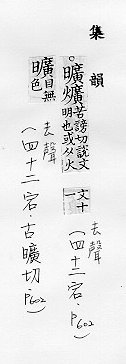 集韻
。曠爌苦謗切說文明也或从火 文十一
去聲(四十二宕.P602)
矌目無色
去聲(四十二宕.古曠切.P602)